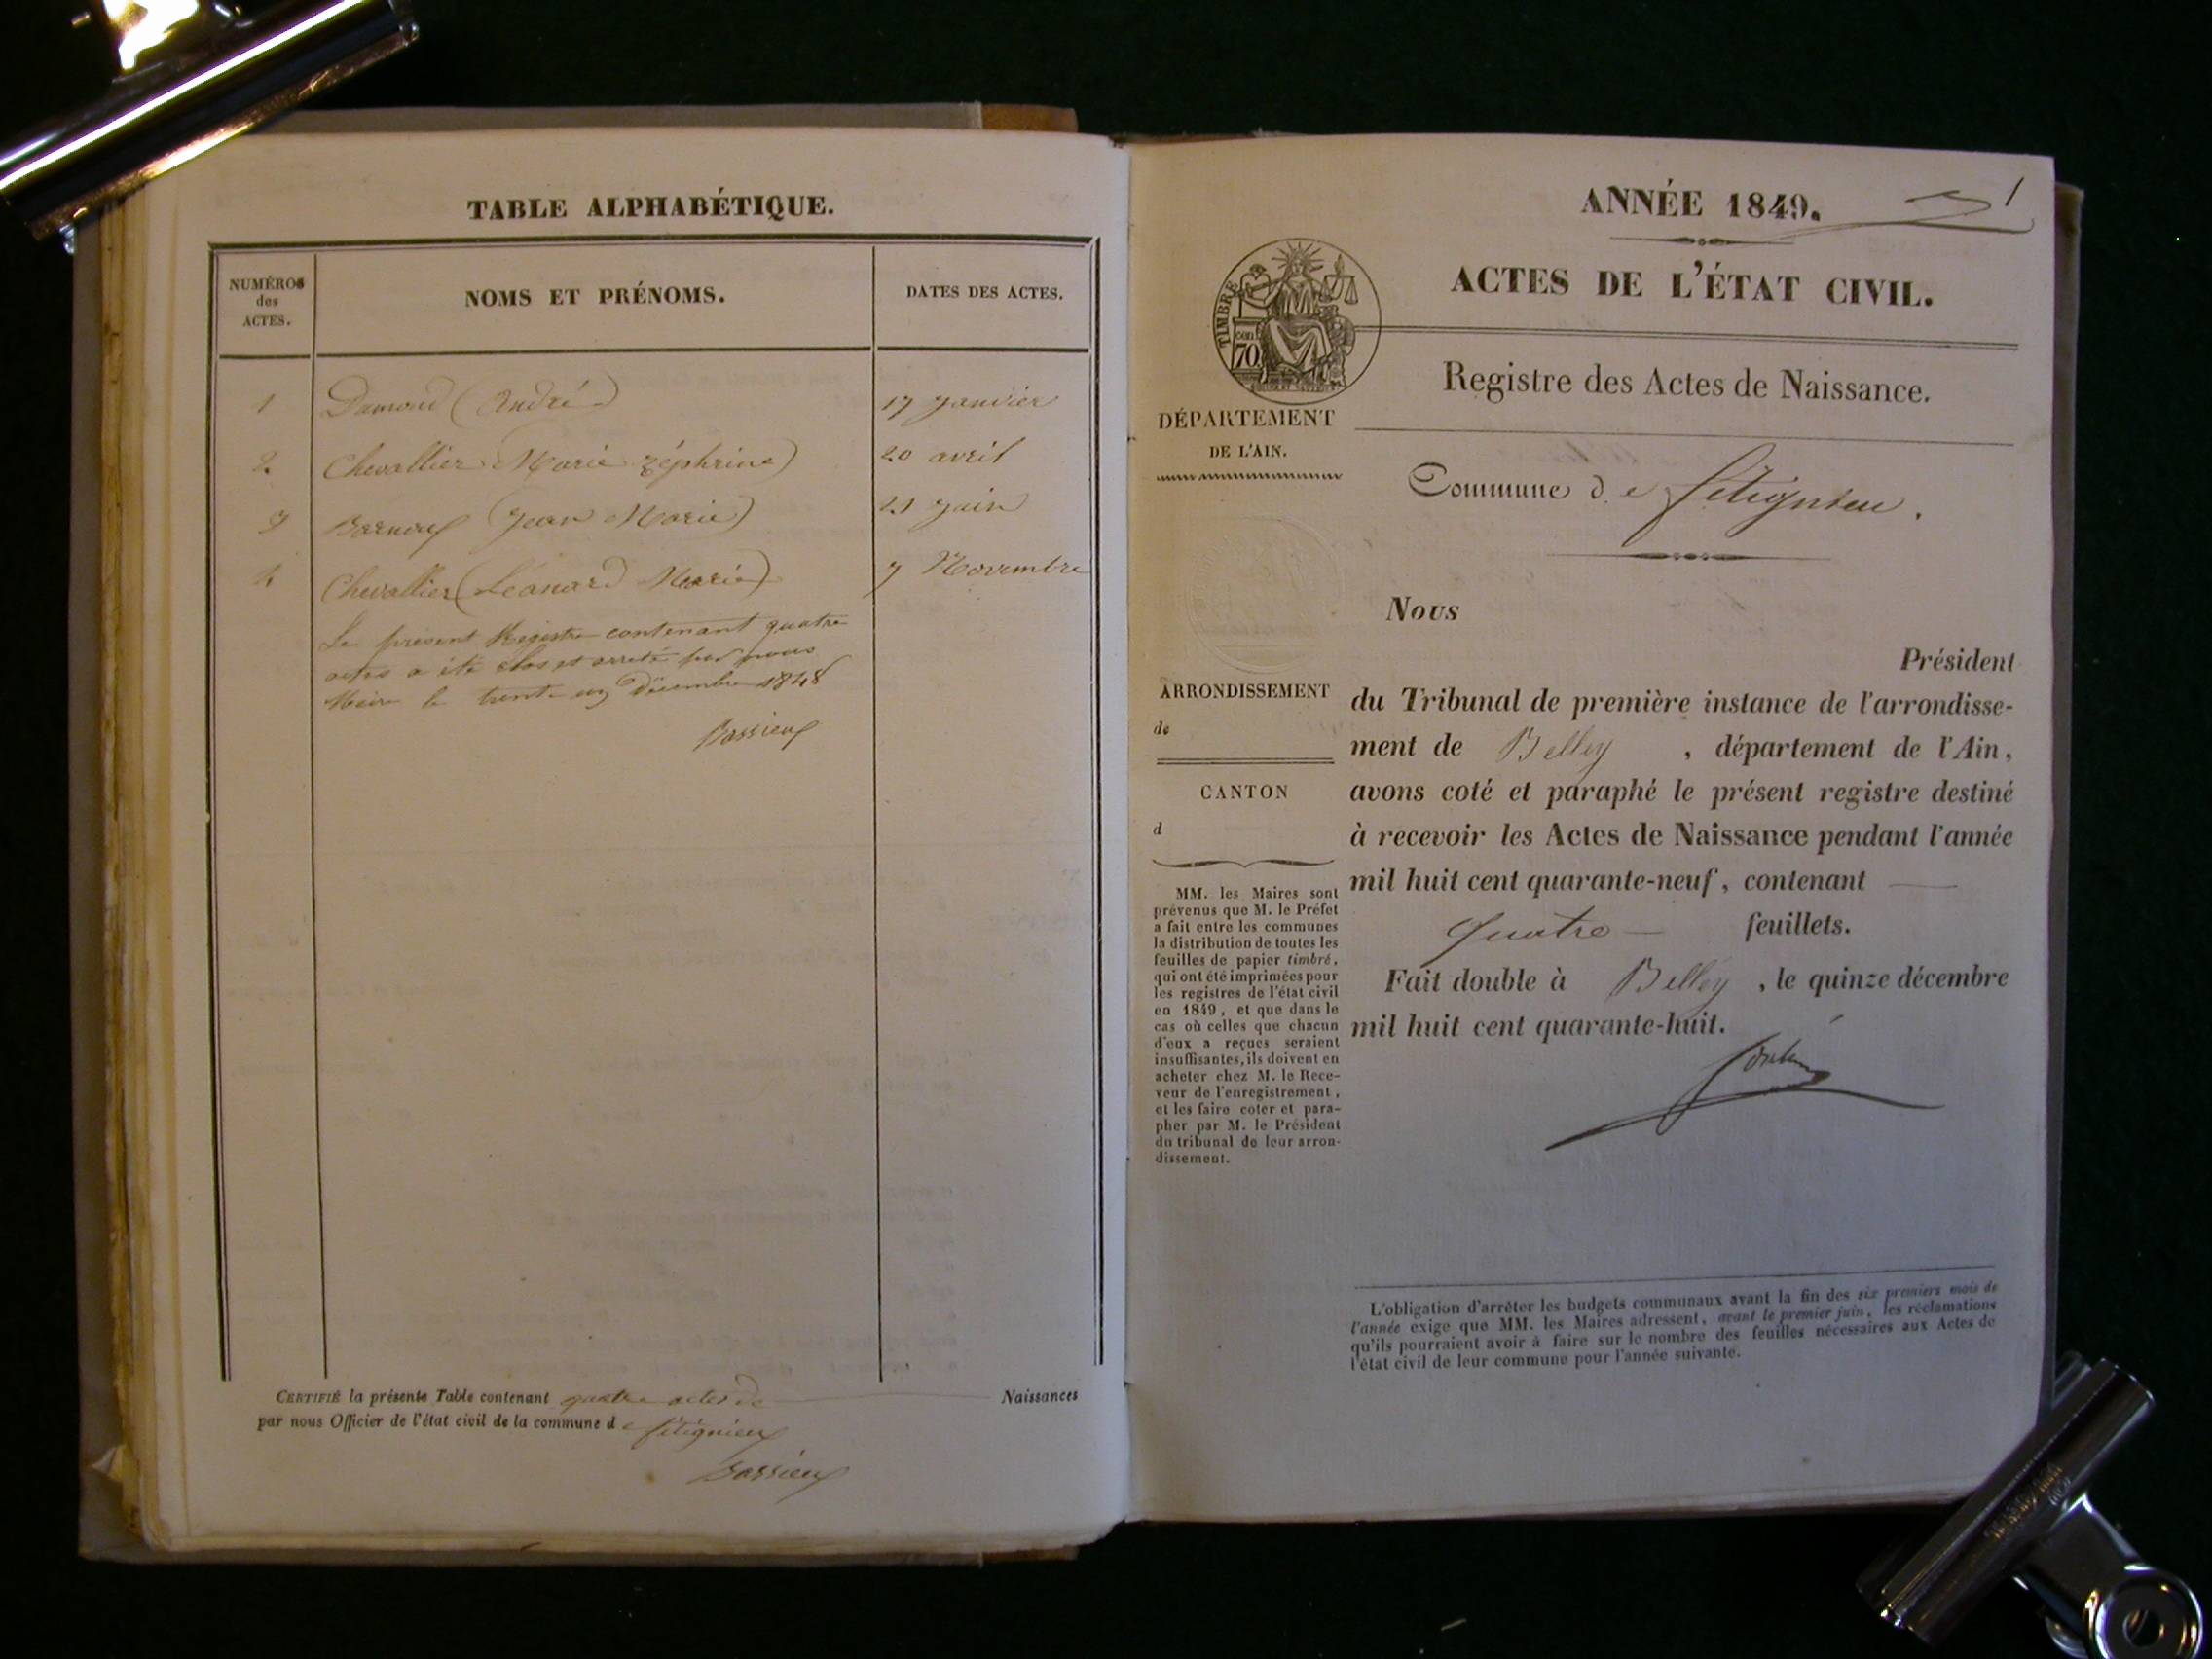 TABLE ALPHABÉTIQUE.
NUMÉROS
des
ACTES.
NOMS ET PRÉNOMS.
DATES DES ACTES.
1 Damond (André) 17 Janvier
2. Chevallier (Marie Zéphrine) 20 avril
3 Barnoux (Jean Marie) 21 Juin
4 Chevallier (Léonard Marie) 7 Novembre
Le présent Registre contenant quatre
actes a été clos et arreté par nous
Maire le trente un Décembre 1848
Bassieux
CERTIFIÉ la présente Table contenant quatre actes de Naissances
par nous Officier de l'état civil de la commune de Sétignieux
Bassieux
ANNÉE 1849.
1
ACTES DE L'ÉTAT CIVIL.
TIMBRE
70
Registre des Actes de Naissance.
DÉPARTEMENT
DE L'AIN.
Commune de
Nous
Président
ARRONDISSEMENT
de
CANTON
d
du Tribunal de première instance de l'arrondisse-
ment de Belley , département de l'Ain,
avons coté et paraphé le présent registre destiné
à recevoir les Actes de Naissance pendant l'année
mil huit cent quarante-neuf, contenant
quatre feuillets.
Fait double à Belley , le quinze décembre
mil huit cent quarante-huit.
MM. les Maires sont
prévenus que M. le Préfet
a fait entre les communes
la distribution de toutes les
feuilles de papier timbré,
qui ont été imprimées pour
les registres de l'état civil
en 1849, et que dans le
cas où celles que chacun
d'eux a reçues seraient
insuffisantes, ils doivent en
acheter chez M. le Rece-
veur de l'enregistrement,
et les faire coter et para-
pher par M. le Président
du tribunal de leur arron-
dissement.
L'obligation d'arrêter les budgets communaux avant la fin des six premiers mois de
l'année exige que MM. les Maires adressent, avant le premier juin, les réclamations
qu'ils pourraient avoir à faire sur le nombre des feuilles nécessaires aux Actes de
l'état civil de leur commune pour l'année suivante.